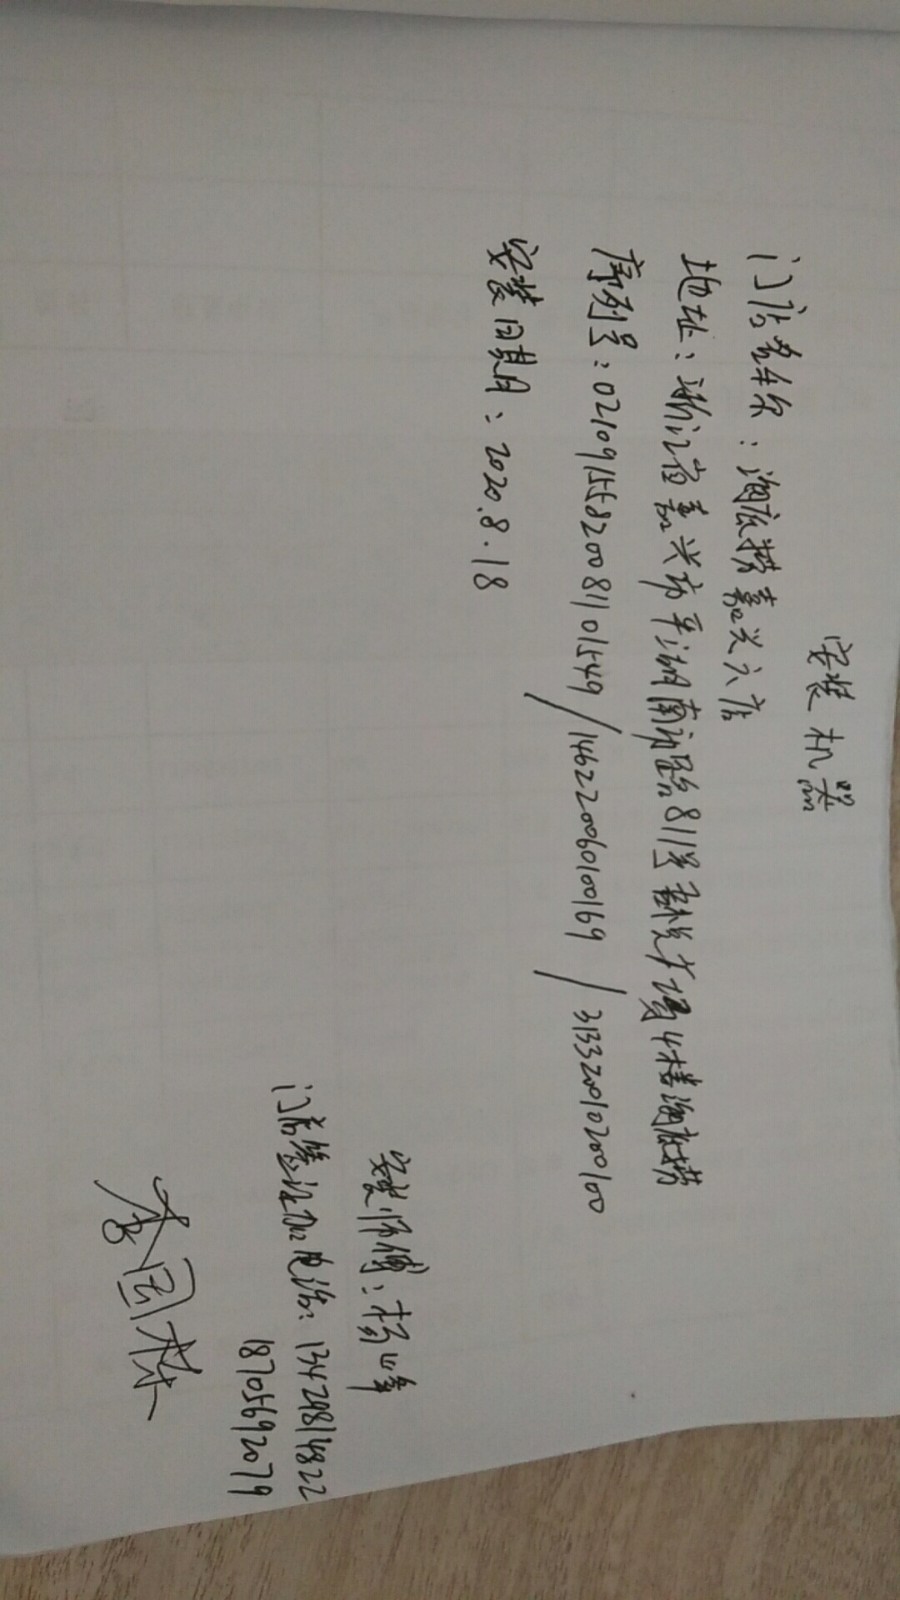 安装机器
门店名称：海底捞嘉兴六店
地址：浙江省嘉兴市平湖南市路811号吾悦广场4楼海底捞
序列号：02109155820081101549/14622006010169/313320010200100
安装日期：2020.8.18
安装师傅：杨峰
门店签证加电话：13429814822
18705692079
李国栋